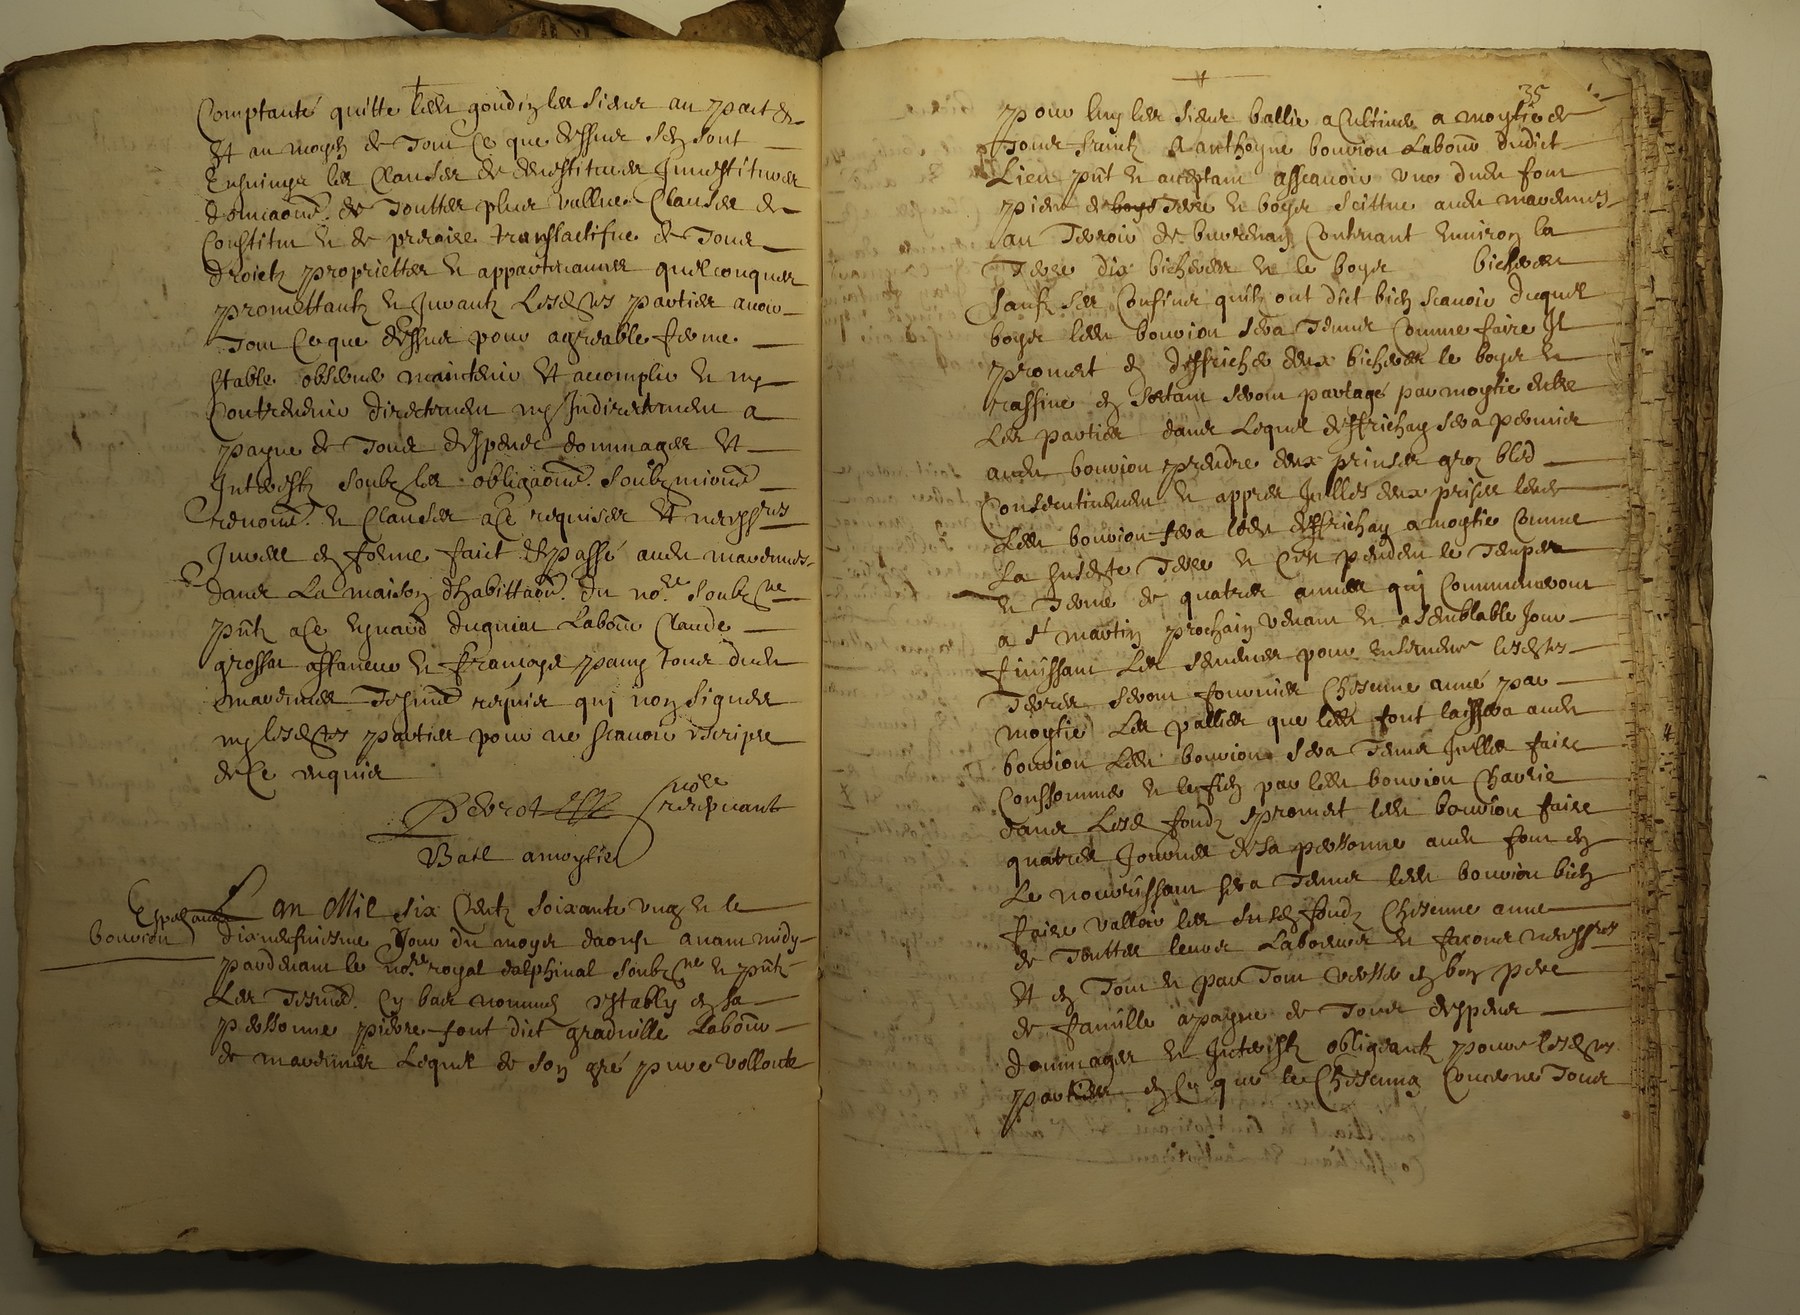 Comptants quitte led goudin les sieur au part &
Et au moyen de Tout Ce que dessus sen sont
Ensuivye les Clauses de devestitues Investitues
donnaōns de Touttes plus vallues Clauses de
Constitu & de precaire translatifve de Tous
droictz proprietes & appartenances quelconques
promettantz & Jurantz Lesdes parties avoir
Tout Ce que dessus pour agreable ferme
stable observe maintenir Et accomplir & ny
Contrevenir directement ny Indirectement a
payne de Tous despens dommages Et
Interestz soubz les obligaōns soubzmions
renonōns & Clauses a Ce requises Et necssres
Juree en forme faict & passé audit marennes
dans La maison dhabittaōn du nore soubzne
pntz a Ce Labōur Claude
grossat affaneur & francoys tous dudit
marennes Tesmōs requis qui non signes
ny lesdes parties pour ne scavoir escripre
de Ce enquis
Perrot nore recepvant
Bail a moytie
L an Mil six Centz soixante ung & le
dixneufviesme Jour du moys daoust avant midy
pardevant le nore royal dalphinal soubzne & pntz
Les Tesmōs Cy bas nommes estably en sa
personne pierre font dict gradville Labōur
de marennes Lequel de son gré pure vollonte
bouvion
35
pour luy les sieur baillie a Cultiver a moytie de
Tous fruitz A anthoyne bouvion Labōur dudict
Lieu pnt & aceptant asscavoir une dudit font
piece de boys Terre & boys scittue audit marennes
au Terroir de Contenant Environ la
Terre dix bicheree & le boys bicheree
sauf ses Confins quilz ont dict bien scavoir duquel
boys led bouvion sera Tenus Comme faire Il
promet en deffricher deux bicheree le boys &
rassine en sortant seront partagé par moytie entre
Les parties dans Lequel deffrichay sera permis
audit bouvion prendre deux prinses gros bled
Consecutivement & appres Jcelles deux prises levee
Led bouvion fera led deffrichay a moytie Comme
La susdte Terre & Cen pendent le Temps
& Terme de quatres annees qui Commenceront
a st martin prochain venant & a semblable Jour
finissant Les semences pour ensemencer lesdes
Terres seront fournies Chesenne anné par
moytie Les pallies que led font laissera audit
bouvion Led bouvion sera Tenus Jcelles faire
Conssommer & le fien par led bouvion Charrie
dans Lesd fondz promet led bouvion faire
quatres Journee de sa personne audit font en
Le nourrissant sera Tenus led bouvion bien
faire valloir les susd fondz Chesenne anne
de Touttes leurs Labeures & facons necssres
Et en Tout & par Tout verser en bon pere
de famille a payne de Tous despens
dommages & Interestz obligeantz pour lesdes
parties en Ce que le Chesenng Concerne Tous